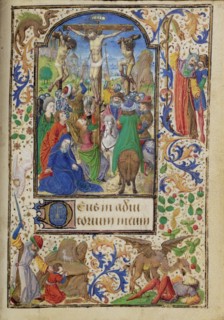 Deus in adiu
torium meum